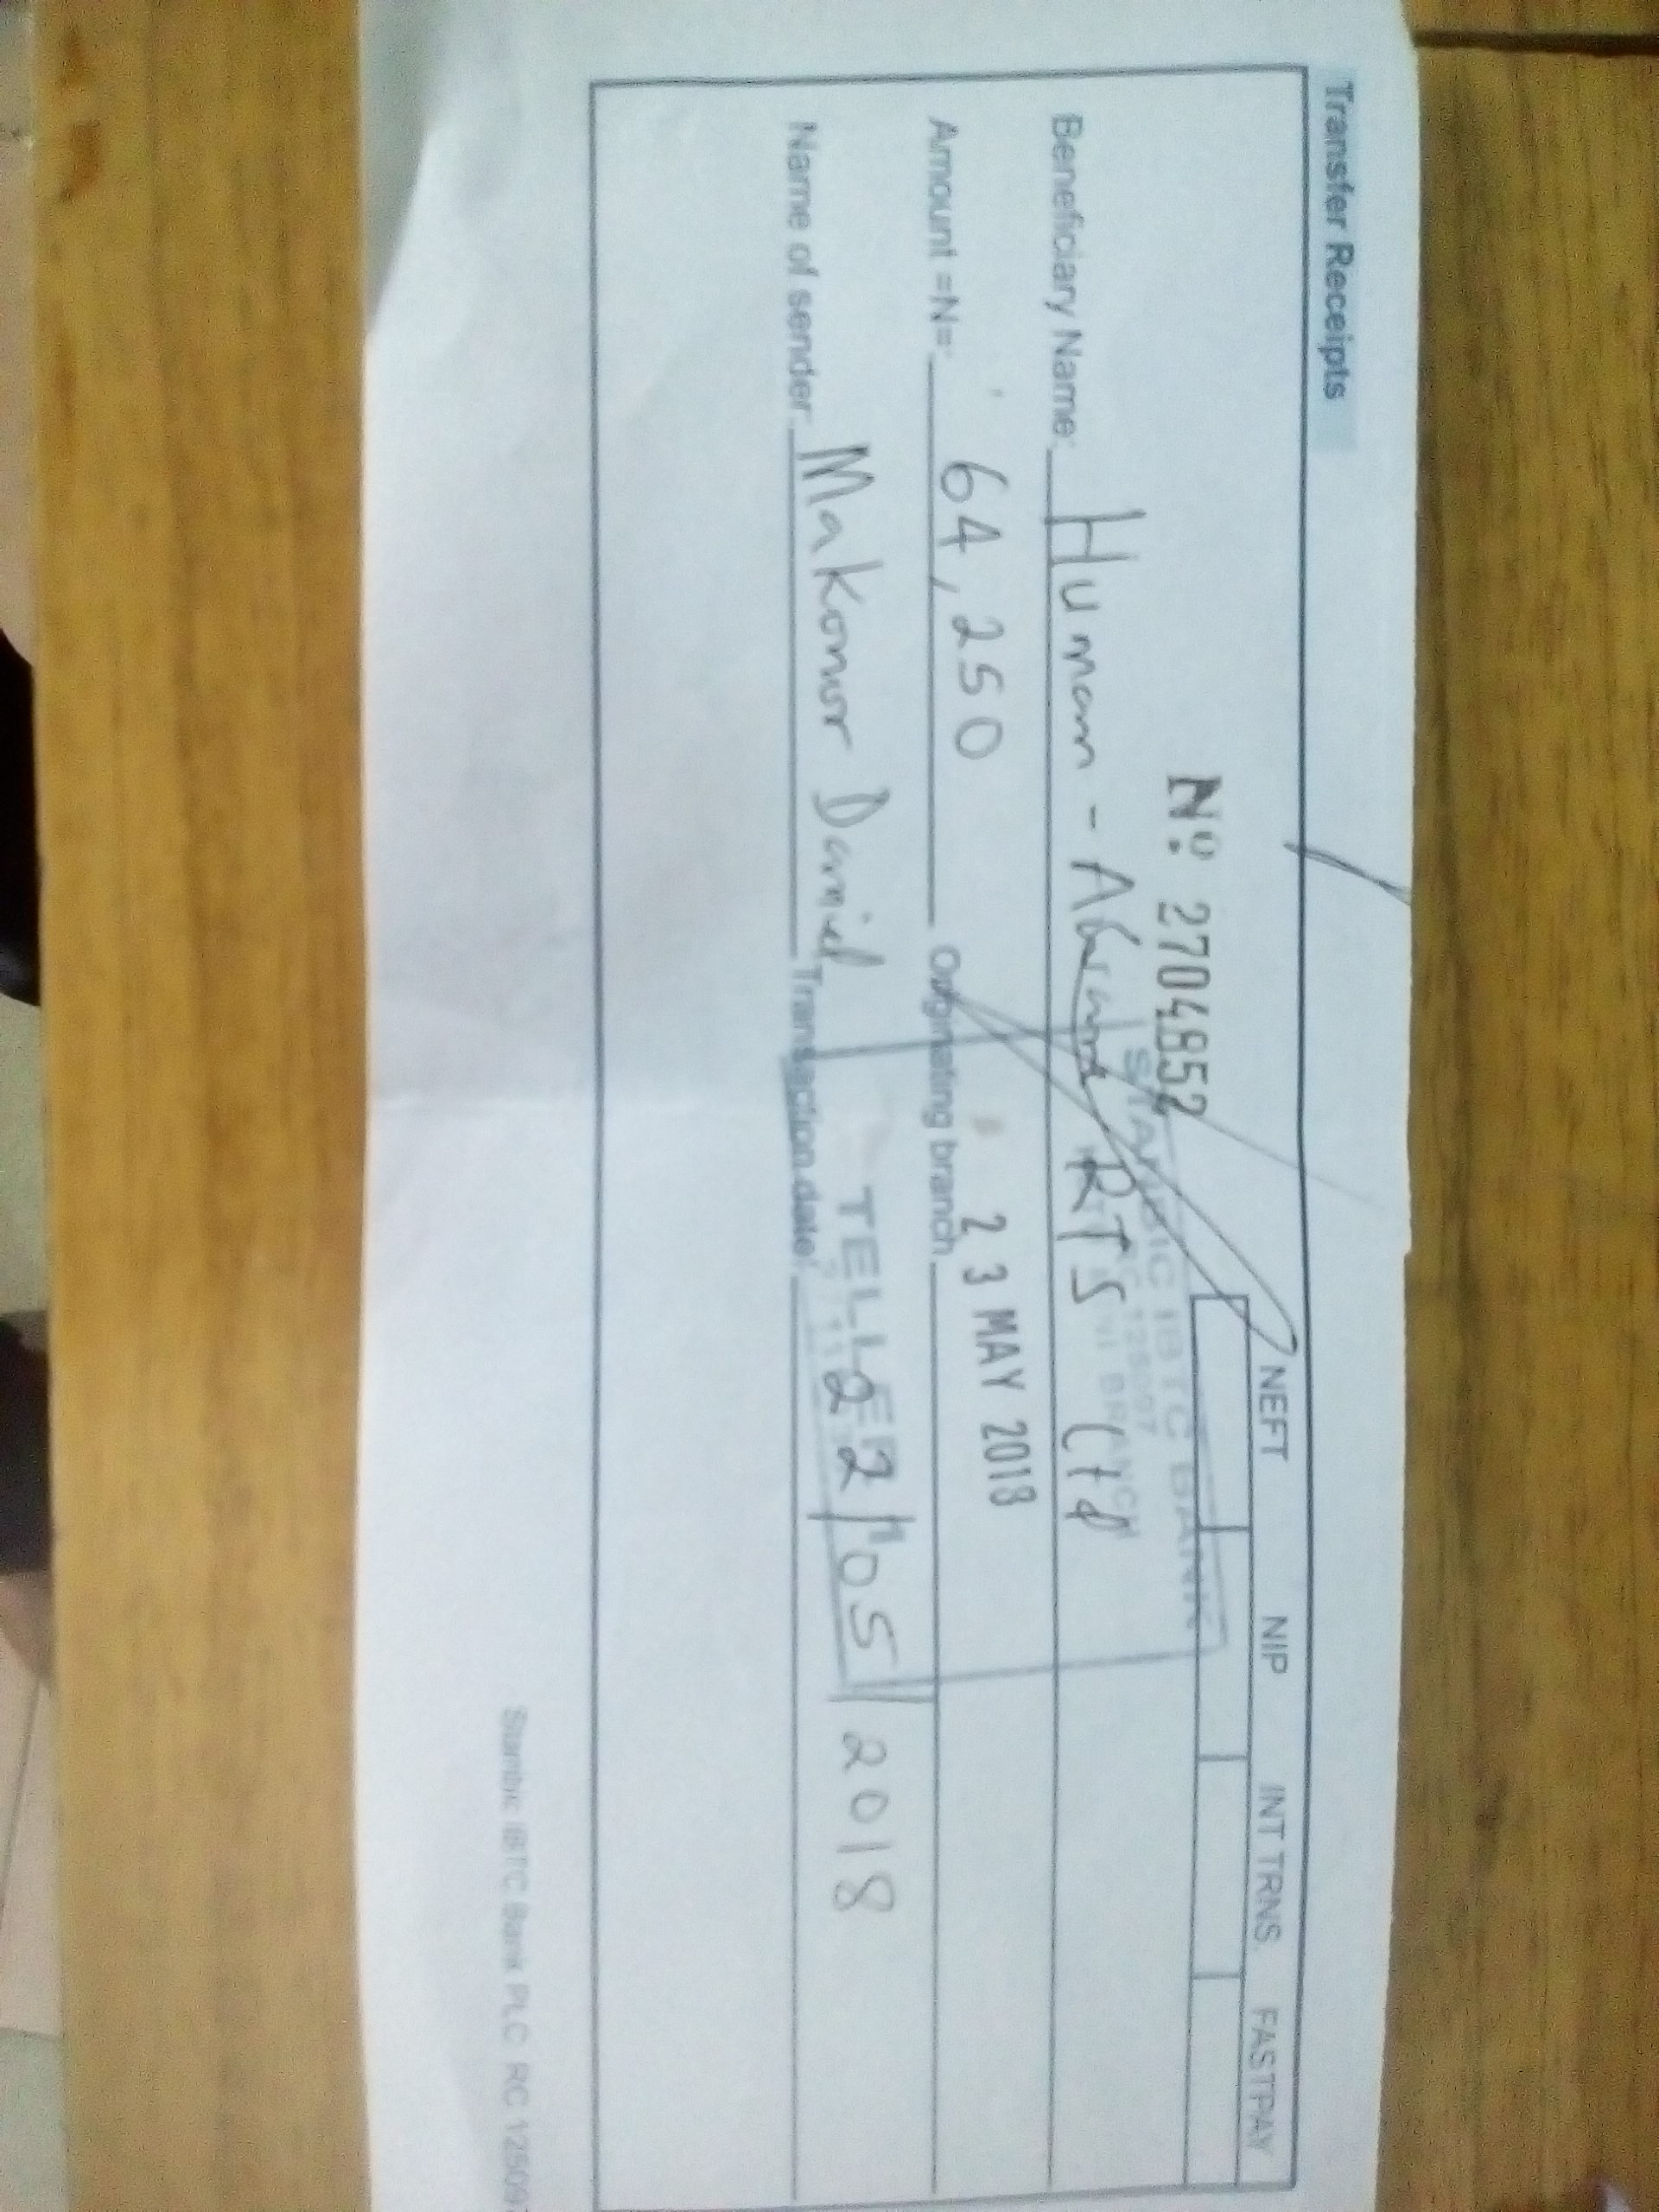 Transfer Receipts
NEFT NIP INT TRNS. FASTPAY
Nº 2704852
STANBIC IBTC BANK
RC 125097
BRANCH
Beneficiary Name: Human - RTS Ltd
23 MAY 2018
Amount =N=: 64,250 Originating branch
TELLER
Name of sender: Makonor Daniel Transaction date: 22/05/2018
Stanbic IBTC Bank PLC RC 125097